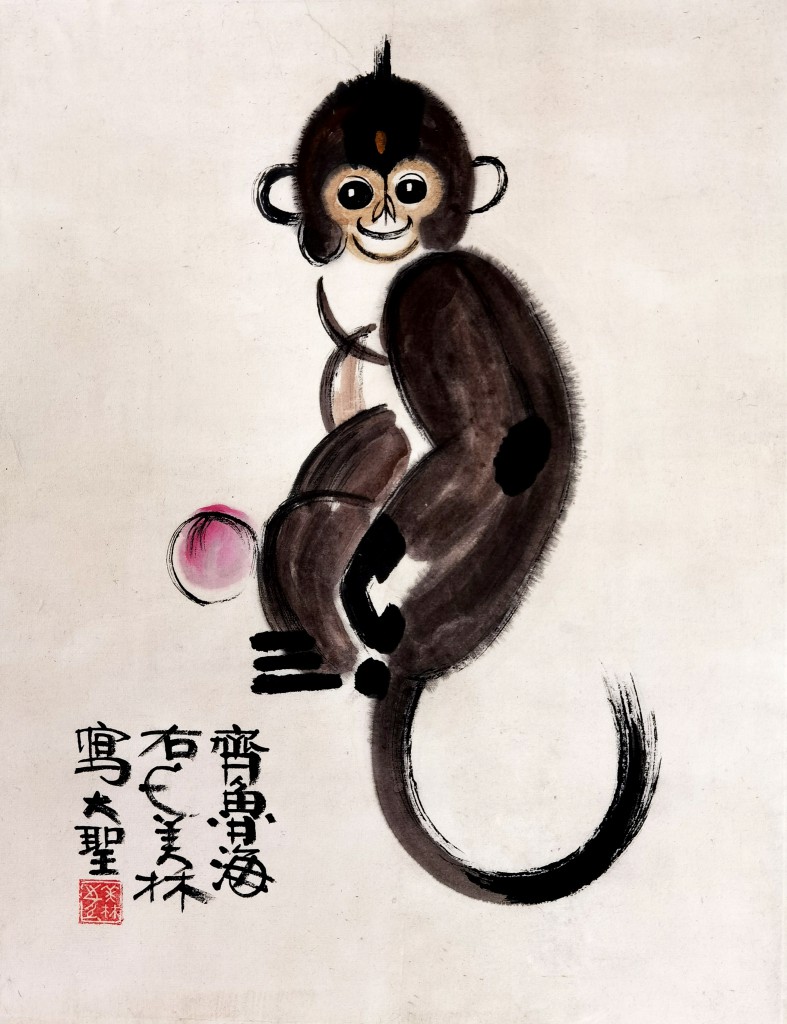 齊魯海
右美林
寫大聖
美林